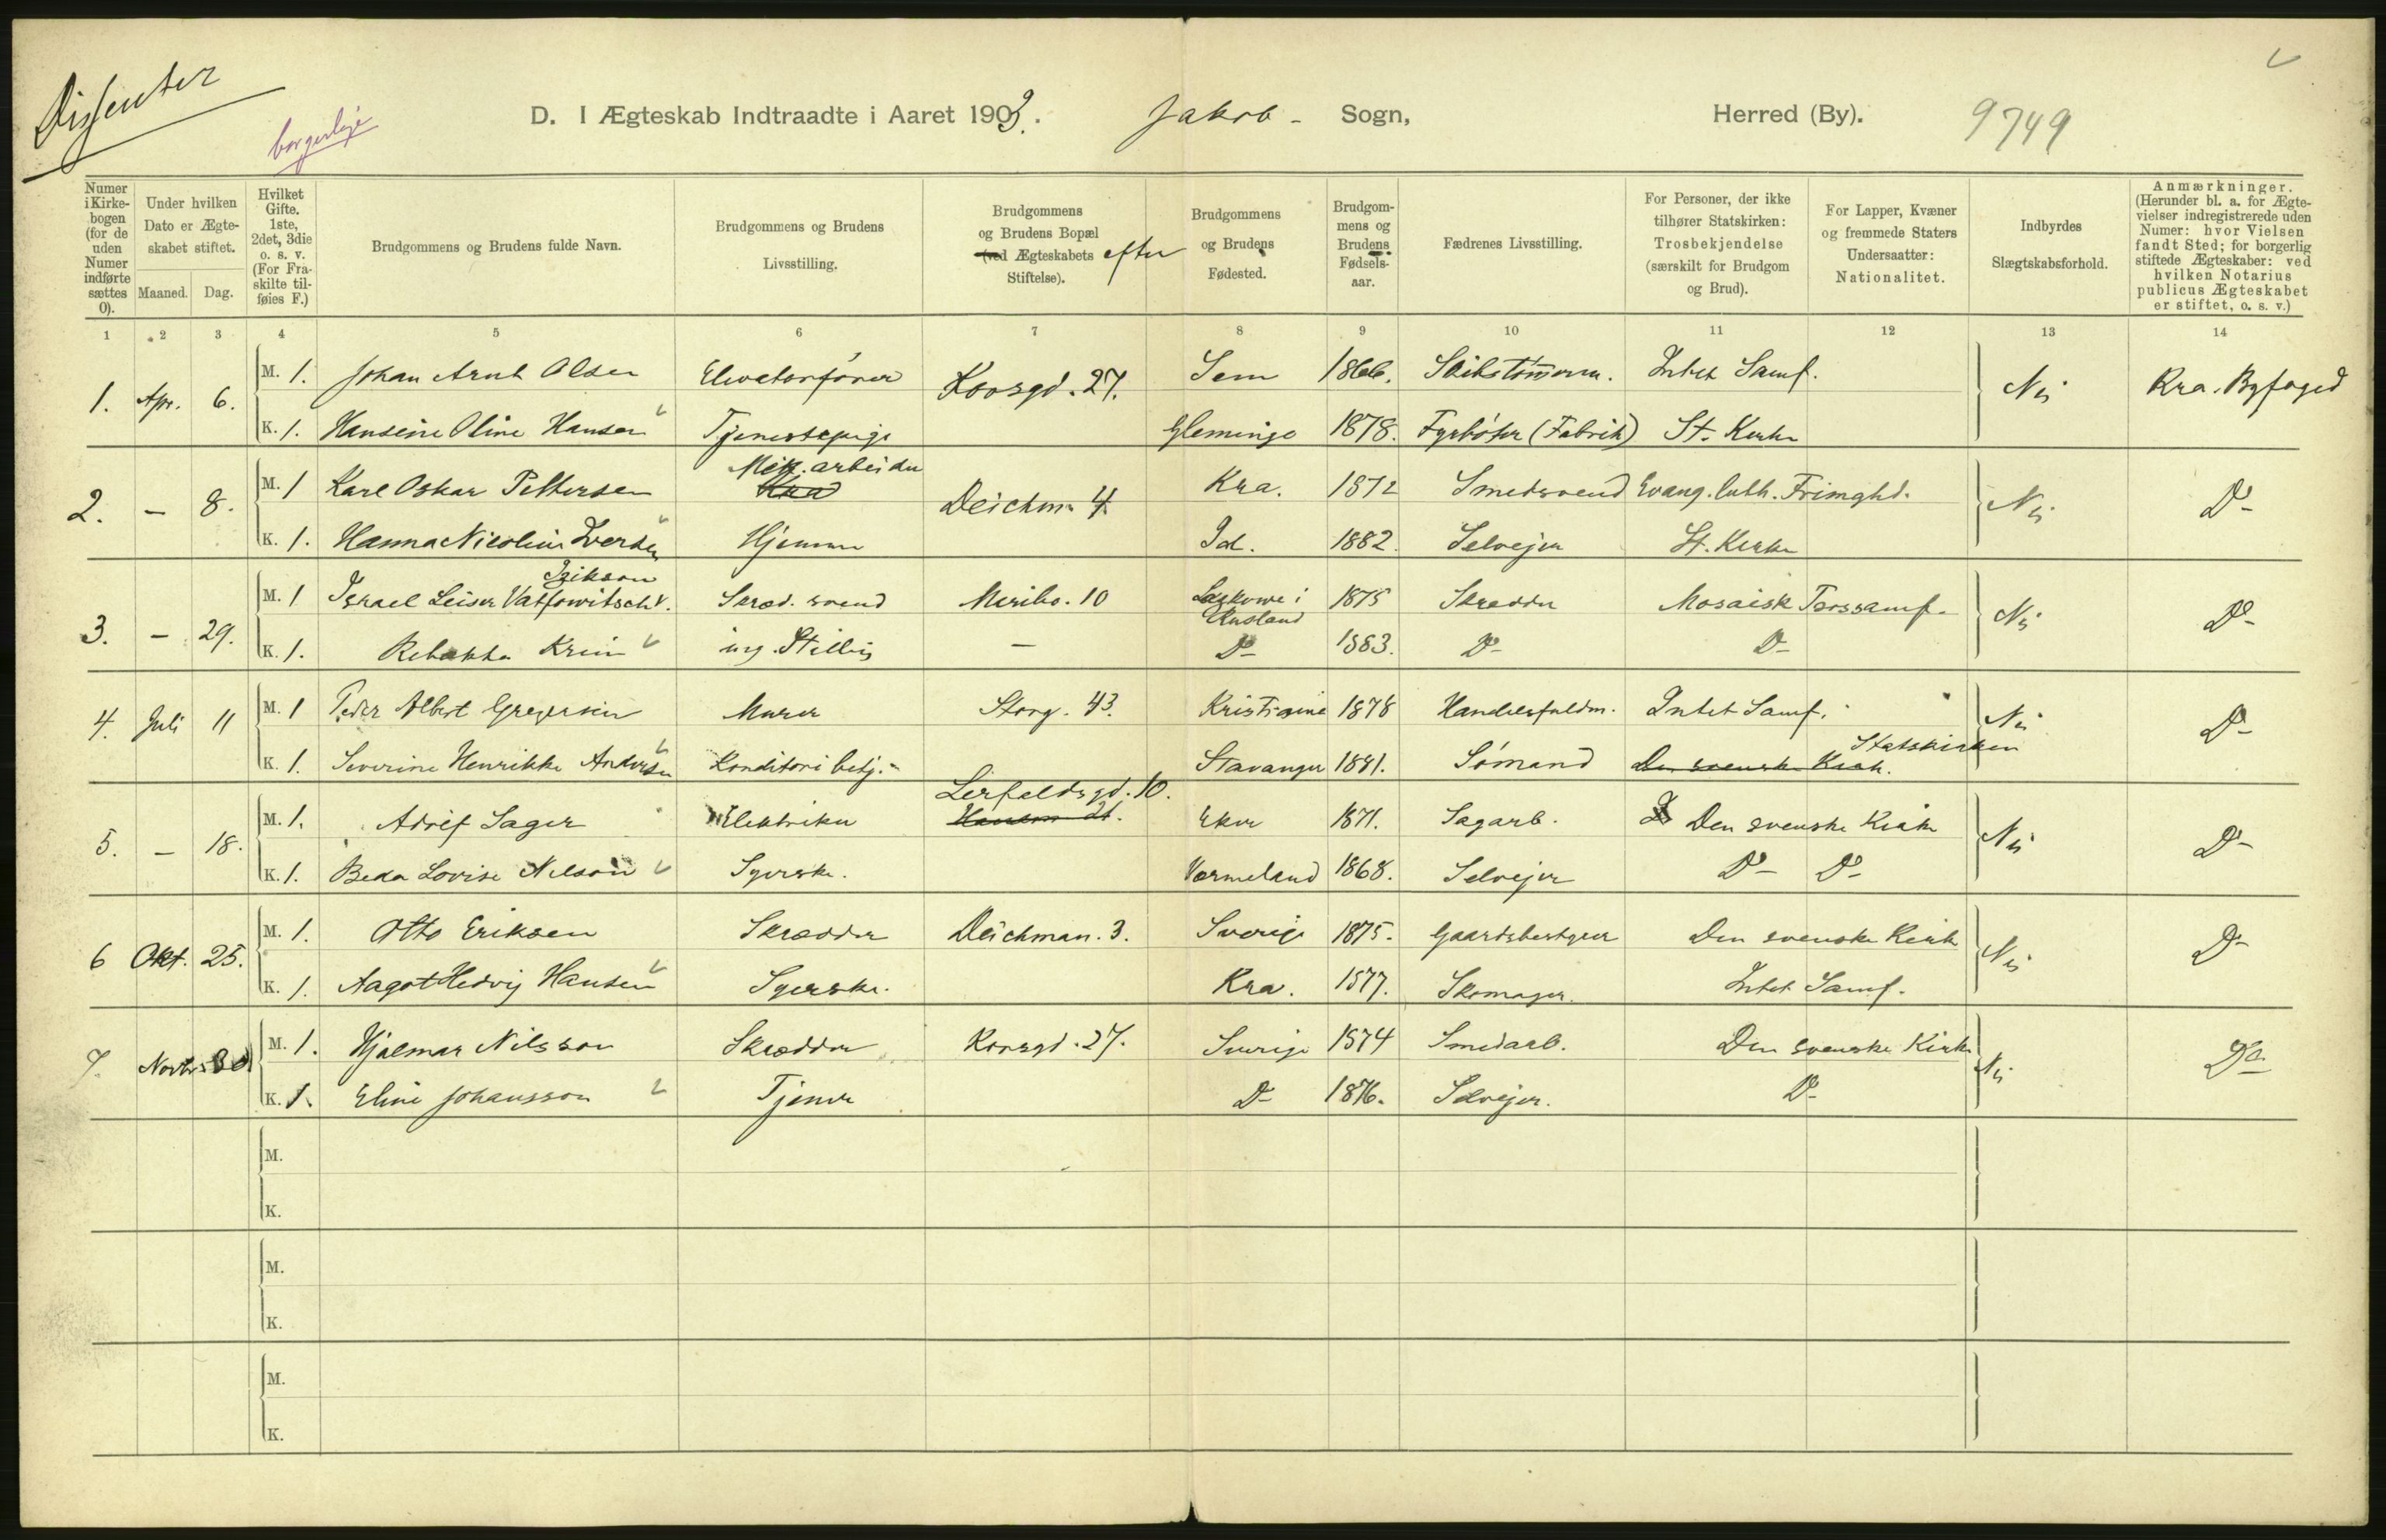 Dissenter
borgerlige
D. I Ægteskab Indtraadte i Aaret 1903. Jakob - Sogn, Herred (By). 9749
Numer i Kirkebogen (for de uden Numer indførte sættes 0).
Under hvilken Dato er Ægteskabet stiftet.
Maaned. Dag.
Hvilket Gifte. 1ste, 2det, 3die o. s. v. (For Fraskilte tilføies F.)
Brudgommens og Brudens fulde Navn.
Brudgommens og Brudens Livsstilling.
Brudgommens og Brudens Bopæl (ved Ægteskabets Stiftelse). efter
Brudgommens og Brudens Fødested.
Brudgommens og Brudens Fødselsaar.
Fædrenes Livsstilling.
For Personer, der ikke tilhører Statskirken: Trosbekjendelse (særskilt for Brudgom og Brud).
For Lapper, Kvæner og fremmede Staters Undersaatter: Nationalitet.
Indbyrdes Slægtskabsforhold.
Anmærkninger. (Herunder bl. a. for Ægtevielser indregistrerede uden Numer: hvor Vielsen fandt Sted; for borgerlig stiftede Ægteskaber: ved hvilken Notarius publicus Ægteskabet er stiftet, o. s. v.)
1 2 3 4 5 6 7 8 9 10 11 12 13 14
1. Apr. 6. M. 1. Johan Arnt Olsen Elevatorfører Korsgd. 27. Sem 1866. Skibstømmerm. Intet Samf. Nei Kra. Byfoged
K. 1. Hansine Oline Hansen Tjenestepige Glemminge 1878. Fyrbøter (Fabrik) St. Kirken
2. — 8. M. 1 Karl Oskar Pettersen Mek. arbeider Deichm. 4. Kra. 1872 Smedsvend Evang. luth. Frimghd. Nei Do
K. 1. Hanna Nicoline Iversen Hjemme Id. 1882. Selvejer St. Kirken
3. — 29. M. 1 Israel Leiser Vatfowitsch Isikson Skræd. svend Meribo. 10 Laskowe i Rusland 1875 Skrædder Mosaisk Trossamf. Nei Do
K. 1. Rebekka Krein ing. Stilling — Do 1883. Do Do
4. Juli 11 M. 1 Peder Albert Gregersen Murer Storg. 43. Kristiania 1878 Handelsfuldm. Intet Samf. Nei Do
K. 1. Severine Henrikke Andersen Konditori betj. Stavanger 1881. Sømand Den svenske Kirke. Statskirken
5. — 18. M. 1. Adolf Sager Elektriker Lerfaldsgd. 10. Eker 1871. Sagarb. Den svenske Kirke Nei Do
K. 1. Beda Lovise Nelson Syerske. Vermeland 1868. Selvejer Do Do
6 Okt. 25. M. 1. Otto Eriksen Skrædder Deichman. 3. Sverige 1875. Gaardsbestyrer Den svenske Kirke Nei Do
K. 1. Aagot Hedvig Hansen Syerske. Kra. 1877. Skomager. Intet Samf.
7. Novbr. 30 M. 1. Hjalmar Nilsson Skrædder Korsgd. 27. Sverige 1874 Smedarb. Den svenske Kirke Nei Do
K. 1. Eline Johansson Tjener Do 1876. Selvejer. Do
M.
K.
M.
K.
M.
K.